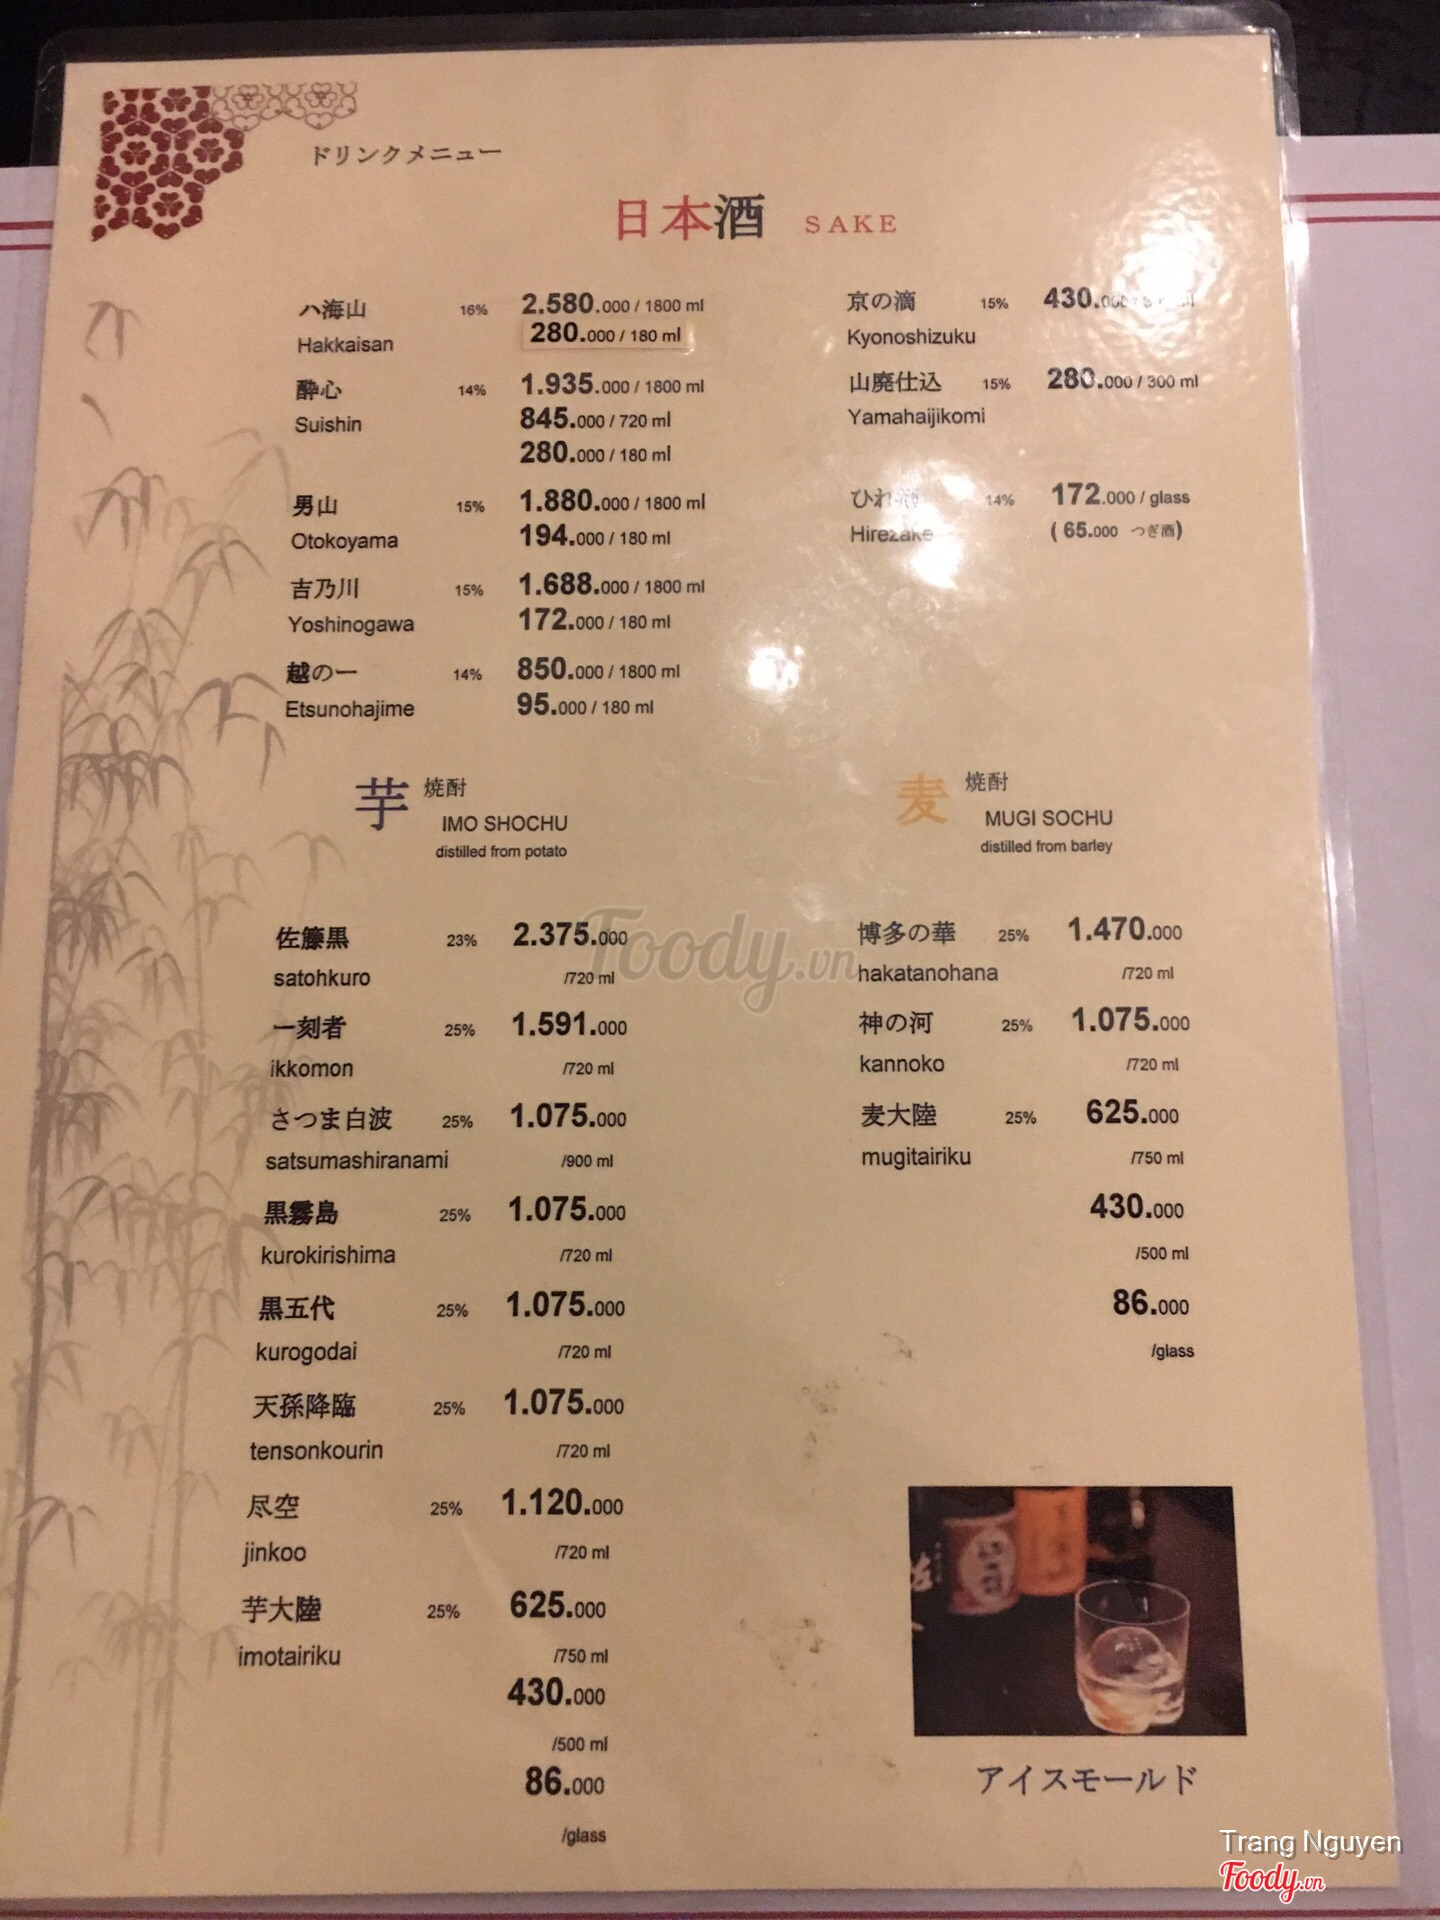 ドリンクメニュー
日本酒 SAKE
ハ海山 16% 2.580.000 / 1800 ml
Hakkaisan 280.000 / 180 ml
酔心 14% 1.935.000 / 1800 ml
Suishin 845.000 / 720 ml
280.000 / 180 ml
男山 15% 1.880.000 / 1800 ml
Otokoyama 194.000 / 180 ml
吉乃川 15% 1.688.000 / 1800 ml
Yoshinogawa 172.000 / 180 ml
越の一 14% 850.000 / 1800 ml
Etsunohajime 95.000 / 180 ml
京の滴 15% 430.000 /
Kyonoshizuku
山廃仕込 15% 280.000 / 300 ml
Yamahaijikomi
ひれ酒 14% 172.000 / glass
Hirezake ( 65.000 つぎ酒)
芋 焼酎
IMO SHOCHU
distilled from potato
佐籐黒 23% 2.375.000
satohkuro /720 ml
一刻者 25% 1.591.000
ikkomon /720 ml
さつま白波 25% 1.075.000
satsumashiranami /900 ml
黒霧島 25% 1.075.000
kurokirishima /720 ml
黒五代 25% 1.075.000
kurogodai /720 ml
天孫降臨 25% 1.075.000
tensonkourin /720 ml
尽空 25% 1.120.000
jinkoo /720 ml
芋大陸 25% 625.000
imotairiku /750 ml
430.000
/500 ml
86.000
/glass
麦 焼酎
MUGI SOCHU
distilled from barley
博多の華 25% 1.470.000
hakatanohana /720 ml
神の河 25% 1.075.000
kannoko /720 ml
麦大陸 25% 625.000
mugitairiku /750 ml
430.000
/500 ml
86.000
/glass
アイスモールド
Foody.vn
Trang Nguyen
Foody.vn